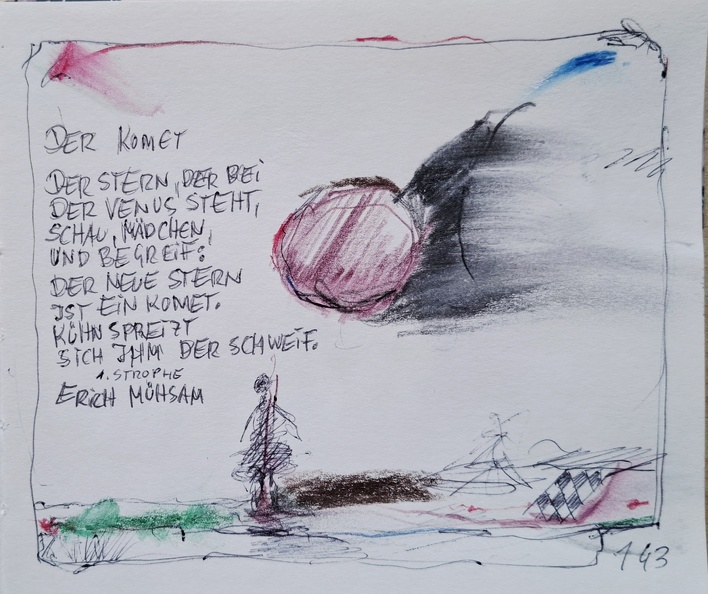 DER KOMET
DER STERN, DER BEI
DER VENUS STEHT,
SCHAU, MÄDCHEN,
UND BEGREIF:
DER NEUE STERN
IST EIN KOMET.
KÜHN SPREIZT
SICH IHM DER SCHWEIF.
1. STROPHE
ERICH MÜHSAM
143